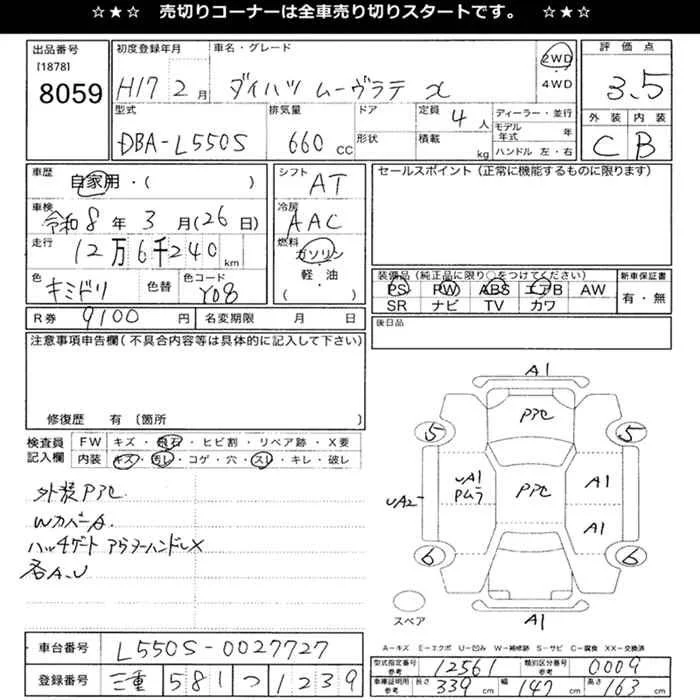 ☆★☆ 売切りコーナーは全車売り切りスタートです。 ☆★☆
出品番号 [1878] 8059
初度登録年月 H17 2月
車名・グレード ダイハツ ムーヴラテ X
2WD ・ 4WD
評価点 3.5
外装 C 内装 B
型式 DBA-L550S
排気量 660 CC
ドア 形状
定員 4 人
積載 kg
ディーラー・並行
モデル年式 年
ハンドル 左・右
車歴 自家用・( )
シフト AT
セールスポイント(正常に機能するものに限ります)
車検 令和8年 3月(26日)
冷房 AAC
走行 12万6千240 km
燃料 ガソリン・軽・油 ( )
色 キミドリ 色替 色コード Y08
装備品(純正品に限り○をつけてください)
PS PW ABS エアB AW
SR ナビ TV カワ
新車保証書 有・無
R券 9100 円 名変期限 月 日
後日品
注意事項申告欄(不具合内容等は具体的に記入して下さい)
修復歴 有 〔箇所 〕
検査員記入欄
FW キズ・飛石・ヒビ割・リペア跡・X要
内装 キズ・汚レ・コゲ・穴・スレ・キレ・破レ
外装Pアセ
WカバーA.
ハッチゲート アウターハンドルX
各A.U
A1
Pアセ
5 5
UA2 UA1 Pムラ Pアセ A1
A1
6 6
スペア A1
A-キズ E-エクボ U-凹み W-補修跡 S-サビ C-腐食 XX-交換済
車台番号 L550S-0027727
登録番号 三重 581 つ 1239
型式指定番号 参考 12561 類別区分番号 参考 0009
車庫証明用 参考 長さ 339 cm 幅 147 cm 高さ 163 cm